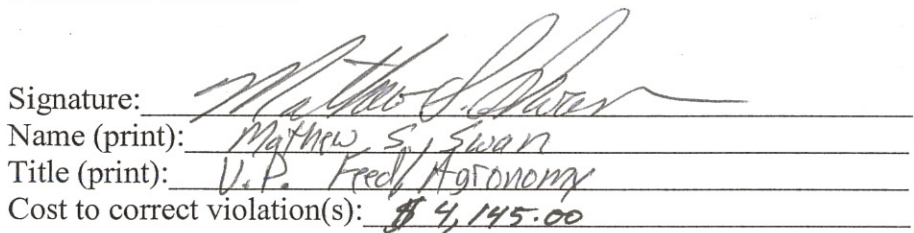 Signature: Mathew S. Swan
Name (print): Mathew S. Swan
Title (print): V.P. Feed/Agronomy
Cost to correct violation(s): $ 4,145.00